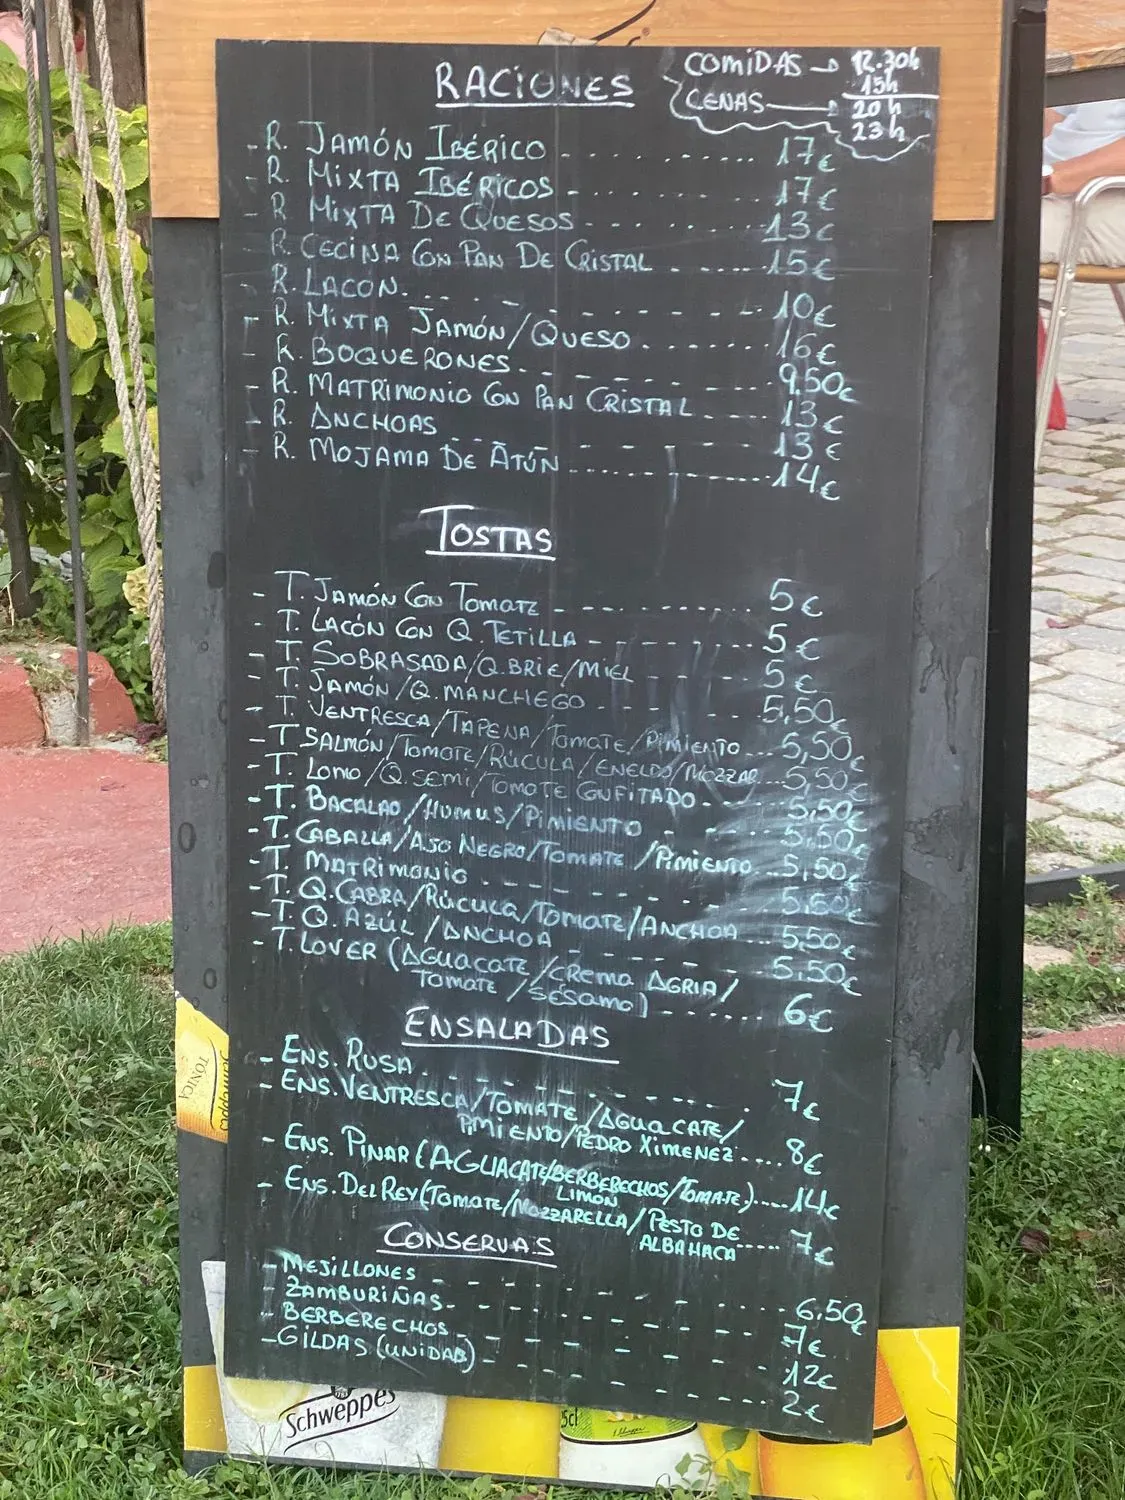 RACIONES
COMIDAS → 12.30h
15h
CENAS → 20h
23h
- R. JAMÓN IBÉRICO - - - - - - - - - 17€
- R. MIXTA IBÉRICOS - - - - - - - - 17€
- R MIXTA DE QUESOS - - - - - - - 13€
- R. CECINA CON PAN DE CRISTAL - - - - - 15€
- R. LACON. - - - - - - - - - 10€
- R. MIXTA JAMÓN/QUESO - - - - - - 16€
- R. BOQUERONES. - - - - - - - - 9,50€
- R. MATRIMONIO CON PAN CRISTAL - - - - 13€
- R. ANCHOAS - - - - - - - - 13€
- R. MOJAMA DE ATÚN - - - - - - - - 14€
TOSTAS
- T. JAMÓN CON TOMATE - - - - - - - - 5€
- T. LACÓN CON Q. TETILLA - - - - - - - 5€
- T. SOBRASADA/Q.BRIE/MIEL - - - - - 5€
- T. JAMÓN/Q.MANCHEGO - - - - - 5,50€
- T. VENTRESCA/TAPENA/TOMATE/PIMIENTO...5,50€
- T SALMÓN/TOMATE/RÚCULA/ENELDO/MOZZAR...5,50€
- T. LOMO/Q.SEMI/TOMATE CONFITADO - - - 5,50€
- T. BACALAO/HUMUS/PIMIENTO - - - - 5,50€
- T. CABALLA/AJO NEGRO/TOMATE/PIMIENTO...5,50€
- T. MATRIMONIO - - - - - - - - 5,50€
- T. Q.CABRA/RÚCULA/TOMATE/ANCHOA...5,50€
- T. Q. AZÚL/ANCHOA - - - - - - 5,50€
- T. LOVER (AGUACATE/CREMA AGRIA/
TOMATE/SÉSAMO) - - - - - - - 6€
ENSALADAS
- ENS. RUSA - - - - - - - - - 7€
- ENS. VENTRESCA/TOMATE/AGUACATE/
PIMIENTO/PEDRO XIMENEZ....8€
- ENS. PINAR (AGUACATE/BERBERECHOS/TOMATE)....14€
LIMÓN
- ENS. DEL REY (TOMATE/MOZZARELLA/PESTO DE
ALBAHACA - - - - - 7€
CONSERVAS
- MEJILLONES - - - - - - - - - 6,50€
- ZAMBURIÑAS - - - - - - - - - 7€
- BERBERECHOS - - - - - - - - - 12€
- GILDAS (UNIDAD) - - - - - - - - 2€
TONICA
Schweppes
Schweppes
5cl